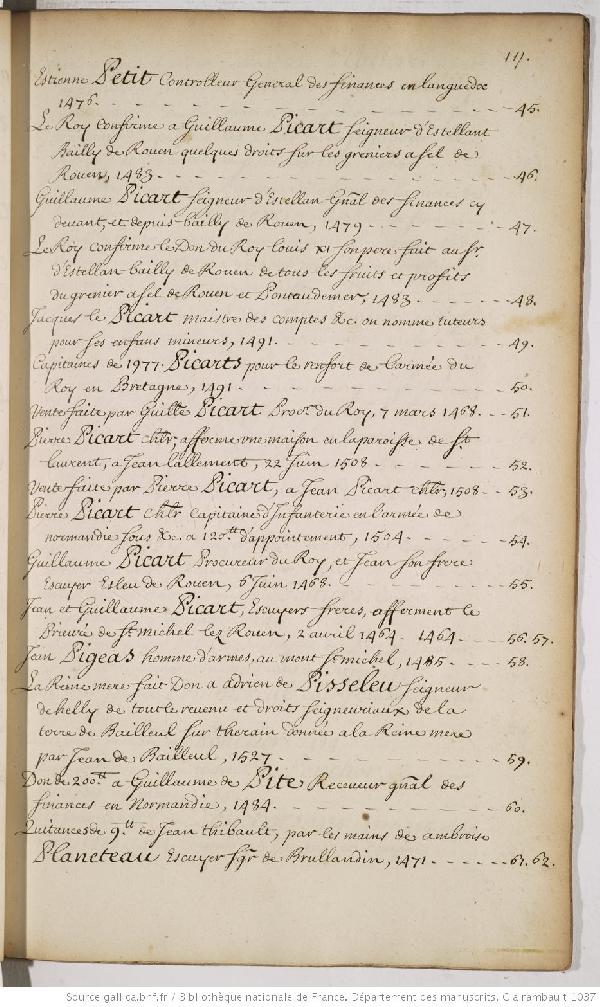 117.
Estienne Petit Controlleur General des finances en languedoc
1476. - - - - 45.
Le Roy confirme a Guillaume Picart seigneur d'Estellant
Bailly de Rouen quelques droits sur les greniers a sel de
Rouen, 1483 - - - - 46.
Guillaume Picart seigneur d'Estellan Gñal des finances cy
devant, et depuis bailly de Rouen, 1479 - - - - 47.
Le Roy confirme le Don du Roy louis xi son pere fait au sr.
d'Estellan bailly de Rouen de tous les fruits et profits
du grenier a sel de Rouen et Ponteaudemer, 1483 - - - - 48.
Jacques le Picart maistre des comptes &c. on nomme tuteurs
pour ses enfans mineurs, 1491. - - - - 49.
Capitaines de 1977. Picarts pour le renfort de l'armée du
Roy en Bretagne, 1491 - - - - 50.
Vente faite par Guille Picart Procr. du Roy, 7 mars 1468. - - 51.
Pierre Picart chlr, afferme une maison en la paroisse de St
laurent, a Jean lallement, 22 Juin 1508 - - - - 52.
Vente faite par Pierre Picart, a Jean Picart chlr, 1508 - - 53.
Pierre Picart chlr Capitaine d'Infanterie en l'armée de
normandie sous &c. a 120.tt d'appointement, 1504 - - - - 54.
Guillaume Picart Procureur du Roy, et Jean son frere
Escuyer Esleu de Rouen, 6 Juin 1468 - - - - 55.
Jean et Guillaume Picart, Escuyers freres, afferment le
Prieuré de St michel lez Rouen, 2 avril 1464. 1464. - - - 56. 57.
Jean Pigeas homme d'armes, au mont St michel, 1485 - - - - 58.
La Reine mere fait Don a adrien de Pisseleu seigneur
de helly de tout le revenu et droits seigneuriaux de la
terre de Bailleul sur therain donnée a la Reine mere
par Jean de Bailleul, 1527 - - - - 59.
Don de 200.tt a Guillaume de Pite Receveur gñal des
finances en Normandie, 1484 - - - - 60.
Quitances de 9.tt de Jean thibault, par les mains de ambroise
Planeteau Escuyer sgr de Brullandin, 1471 - - - - 61. 62.
Source gallica.bnf.fr / Bibliothèque nationale de France. Département des manuscrits. Clairambault 1037